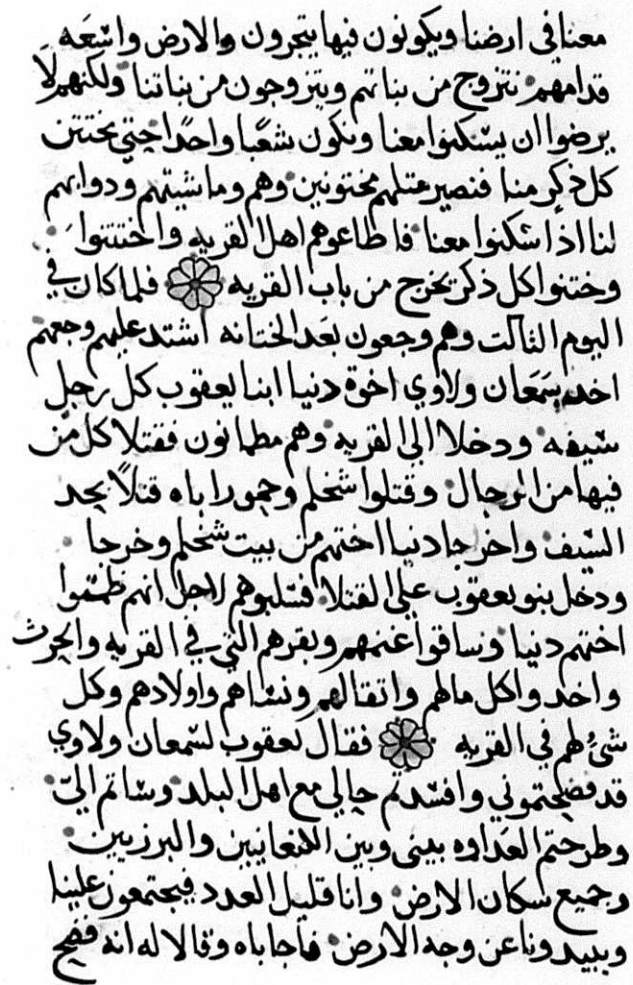 معنا في ارضنا ويكونون فيها يتجرون والارض واسعه
قدامهم نتزوج من بناتهم ويتزوجون من بناتنا ولكنهم لا
يرضوا ان يسكنوا معنا ونكون شعبا واحدا حتي يختتن
كل ذكر منا فنصير مثلهم مختونين وهم وماشيتهم ودوابهم
لنا اذا سكنوا معنا فاطاعوهم اهل القريه واختتنوا
وختنوا كل ذكر يخرج من باب القريه فلما كان في
اليوم الثالت وهم وجعون بعد الختانه اشتد عليهم وجعهم
اخد سمعان ولاوي اخوة دنيا ابنا يعقوب كل رجل
سيفه ودخلا الي القريه وهم مطمانون فقتلا كل من
فيها من الرجال وقتلوا شخلم وحمور اباه قتلا بحد
السيف واخرجا دنيا اختهم من بيت شخلم وخرجا
ودخل بنو يعقوب علي القتلا فسلبوهم لاجل انهم طمثوا
اختهم دنيا وساقوا غنمهم وبقرهم التي في القريه والحرث
واخدوا كل مالهم واتقالهم ونساهم واولادهم وكل
شئ لهم في القريه فقال يعقوب لسمعان ولاوي
قد فضحتموني وافسدتم حالي مع اهل البلد وساتم الي
وطرحتم العداوه بيني وبين الكنعانيين والبرزيين
وجميع سكان الارض وانا قليل العدد فيجتمعون علينا
ويبيدونا عن وجه الارض فاجاباه وقالا له انه فضح